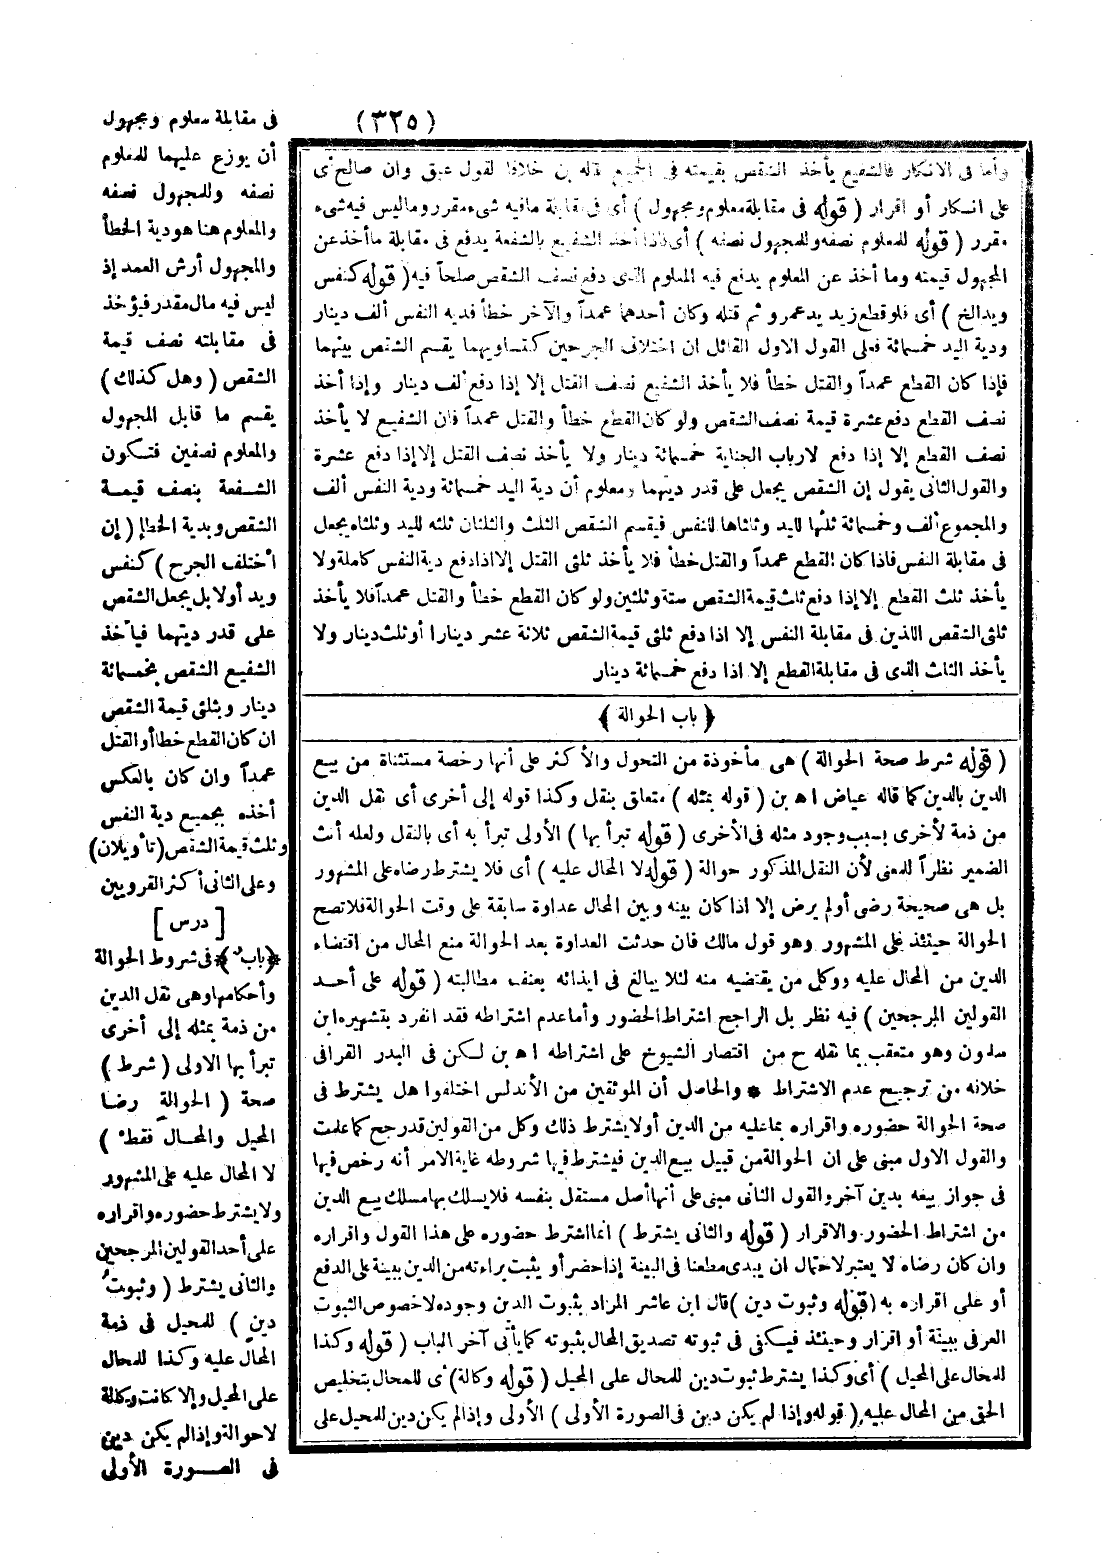 (٣٢٥)
فى مقابلة معلوم ومجهول
أن يوزع عليهما للمعلوم
نصفه وللمجهول نصفه
والمعلوم هنا هودية الخطأ
والمجهول أرش العمد إذ
ليس فيه مال مقدر فيؤخذ
فى مقابلته نصف قيمة
الشقص (وهل كذلك)
يقسم ما قابل المجهول
والمعلوم نصفين فتكون
الشفعة بنصف قيمة
الشقص وبدية الخطأ (إن
اختلف الجرح) كنفس
ويد أولا بل يجعل الشقص
على قدر ديتهما فيأخذ
الشفيع الشقص بخمسمائة
دينار وبثلثى قيمة الشقص
ان كان القطع خطأ والقتل
عمداً وان كان بالعكس
أخذه بجميع دية النفس
وثلث قيمة الشقص (تأويلان)
وعلى الثانى أكثر القرويين
[درس]
﴿باب﴾ فى شروط الحوالة
وأحكامها وهى نقل الدين
من ذمة بمثله إلى أخرى
تبرأ بها الاولى (شرط)
صحة (الحوالة رضا
المحيل والمحال فقط)
لا المحال عليه على المشهور
ولا يشترط حضوره واقراره
على أحد القولين المرجحين
والثانى يشترط (وثبوت
دين) للمحيل فى ذمة
المحال عليه وكذا للمحال
على المحيل وإلا كانت وكالة
لا حوالة وإذا لم يكن دين
فى الصورة الأولى
وأما فى الانكار فالشفيع يأخذ الشقص بقيمته فى الجميع قاله بن خلافا لقول عبق وان صالح أى
على انكار أو اقرار (قوله فى مقابلة معلوم ومجهول) أى فى مقابلة مافيه شىء مقرر وماليس فيه شىء
مقرر (قوله للمعلوم نصفه وللمجهول نصفه) أى فاذا أخذ الشفيع بالشفعة يدفع فى مقابلة ماأخذ عن
المجهول قيمته وما أخذ عن المعلوم يدفع فيه المعلوم الذى دفع نصف الشقص صلحاً فيه (قوله كنفس
ويد الخ) أى فلو قطع زيد يد عمرو ثم قتله وكان أحدهما عمداً والآخر خطأ فدية النفس ألف دينار
ودية اليد خمسمائة فعلى القول الاول القائل ان اختلاف الجرحين كتساويهما يقسم الشقص بينهما
فإذا كان القطع عمداً والقتل خطأ فلا يأخذ الشفيع نصف القتل إلا إذا دفع ألف دينار وإذا أخذ
نصف القطع دفع عشرة قيمة نصف الشقص ولو كان القطع خطأ والقتل عمداً فان الشفيع لا يأخذ
نصف القطع إلا إذا دفع لارباب الجناية خمسمائة دينار ولا يأخذ نصف القتل إلا إذا دفع عشرة
والقول الثانى يقول إن الشقص يجعل على قدر ديتهما ومعلوم أن دية اليد خمسمائة ودية النفس ألف
والمجموع ألف وخمسمائة ثلثها لليد وثلثاها للنفس فيقسم الشقص الثلث والثلثان ثلثه لليد وثلثاه يجعل
فى مقابلة النفس فاذا كان القطع عمداً والقتل خطأ فلا يأخذ ثلثى القتل إلا اذا دفع دية النفس كاملة ولا
يأخذ ثلث القطع إلا إذا دفع ثلث قيمة الشقص ستة وثلثين ولو كان القطع خطأ والقتل عمداً فلا يأخذ
ثلثى الشقص اللذين فى مقابلة النفس إلا اذا دفع ثلثى قيمة الشقص ثلاثة عشر دينارا أو ثلث دينار ولا
يأخذ الثلث الذى فى مقابلة القطع إلا اذا دفع خمسمائة دينار
﴿باب الحوالة﴾
(قوله شرط صحة الحوالة) هى مأخوذة من التحول والأكثر على أنها رخصة مستثناة من بيع
الدين بالدين كما قاله عياض اه بن (قوله بمثله) متعلق بنقل وكذا قوله إلى أخرى أى نقل الدين
من ذمة لأخرى بسبب وجود مثله فى الأخرى (قوله تبرأ بها) الأولى تبرأ به أى بالنقل ولعله أنث
الضمير نظراً للمعنى لأن النقل المذكور حوالة (قوله لا المحال عليه) أى فلا يشترط رضاه على المشهور
بل هى صحيحة رضى أو لم يرض إلا اذا كان بينه وبين المحال عداوة سابقة على وقت الحوالة فلا تصح
الحوالة حينئذ على المشهور وهو قول مالك فان حدثت العداوة بعد الحوالة منع المحال من اقتضاء
الدين من المحال عليه ووكل من يقتضيه منه لئلا يبالغ فى ايذائه بعنف مطالبته (قوله على أحد
القولين المرجحين) فيه نظر بل الراجح اشتراط الحضور وأما عدم اشتراطه فقد انفرد بتشهيره ابن
سلمون وهو متعقب بما نقله ح من اقتصار الشيوخ على اشتراطه اه بن لكن فى البدر القرافى
خلافه من ترجيح عدم الاشتراط * والحاصل أن الموثقين من الأندلس اختلفوا هل يشترط فى
صحة الحوالة حضوره واقراره بما عليه من الدين أو لا يشترط ذلك وكل من القولين قد رجح كما علمت
والقول الاول مبنى على ان الحوالة من قبيل بيع الدين فيشترط فيها شروطه غاية الامر أنه رخص فيها
فى جواز بيعه بدين آخر والقول الثانى مبنى على أنها أصل مستقل بنفسه فلا يسلك بها مسلك بيع الدين
من اشتراط الحضور والاقرار (قوله والثانى يشترط) انما اشترط حضوره على هذا القول واقراره
وان كان رضاه لا يعتبر لاحتمال ان يبدى مطعنا فى البينة إذا حضر أو يثبت براءته من الدين ببينة على الدفع
أو على اقراره به (قوله وثبوت دين) قال ابن عاشر المراد بثبوت الدين وجوده لا خصوص الثبوت
العرفى ببينة أو اقرار وحينئذ فيكفى فى ثبوته تصديق المحال بثبوته كما يأتى آخر الباب (قوله وكذا
للمحال على المحيل) أى وكذا يشترط ثبوت دين للمحال على المحيل (قوله وكالة) أى للمحال بتخليص
الحق من المحال عليه (قوله وإذا لم يكن دين فى الصورة الأولى) الأولى وإذا لم يكن دين للمحيل على